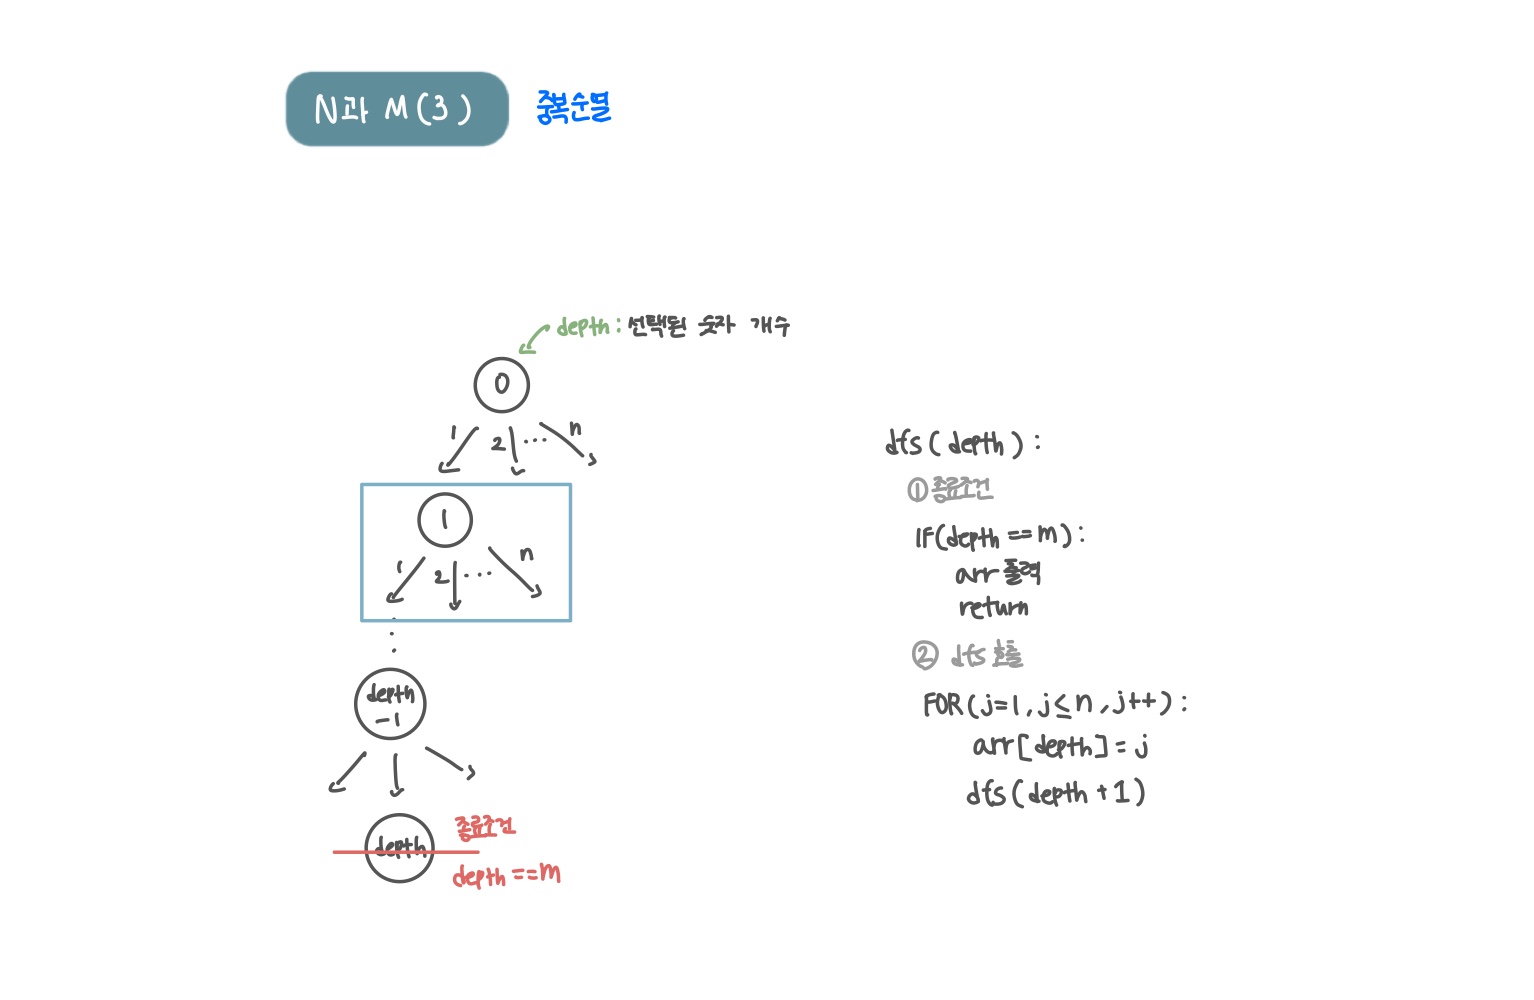 N과 M(3) 중복순열
depth : 선택된 숫자 개수
0
1 2 ... n
1
1 2 ... n
depth
-1
depth
종료조건
depth == m
dfs(depth):
① 종료조건
IF(depth == m):
arr 출력
return
② dfs 호출
FOR(j=1, j≤n, j++):
arr[depth] = j
dfs(depth+1)